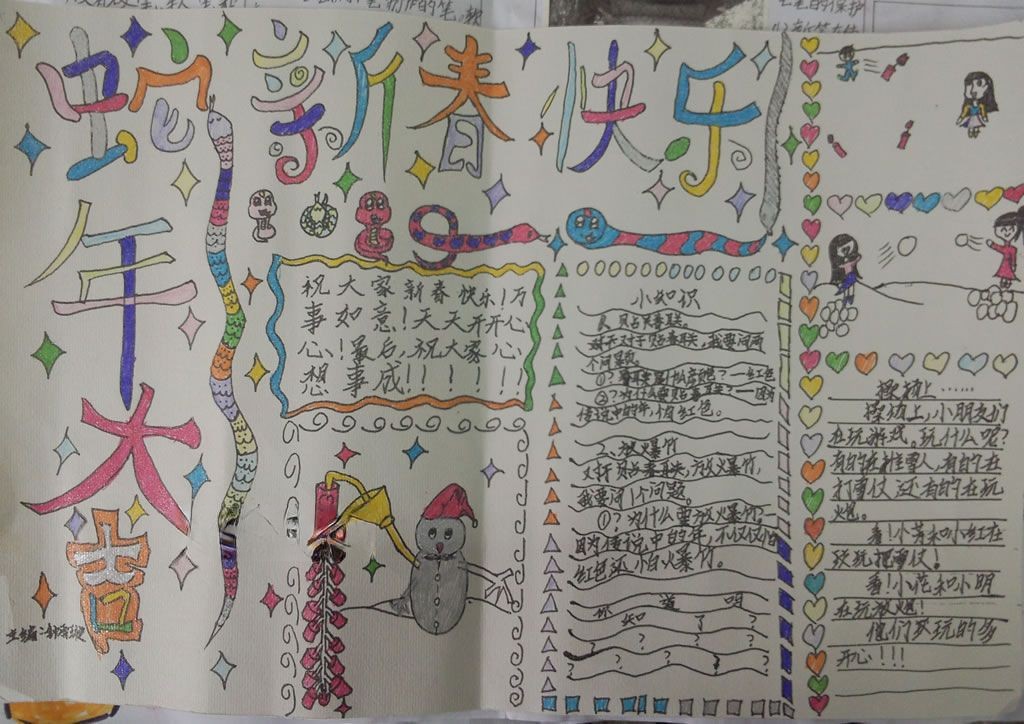 蛇 新春 快乐
年
大
吉
主编:
祝大家新春快乐!万
事如意!天天开开心
心!最后,祝大家心
想事成!!!!!!
小知识
1、贴春联。
对于贴春联,我要问两
个问题。
①?春联是什么颜色?——红色
②?为什么要贴春联?——因为
传说中的年,怕红色。
2、放火爆竹
又打贴春联,放火爆竹,
我要问1个问题。
①?为什么要放火爆竹?—
因为传说中的年,不仅仅怕
红色还怕火爆竹。
你 知 道 了 吗
? ? ? ? ?
操场上……
操场上,小朋友们
在玩游戏,玩什么呢?
有的在堆雪人,有的在
打雪仗还有的在玩
火包。
看!小芳和小红在
玩打雪仗!
看!小花和小明
在玩放火包!
他们玩的多
开心!!!